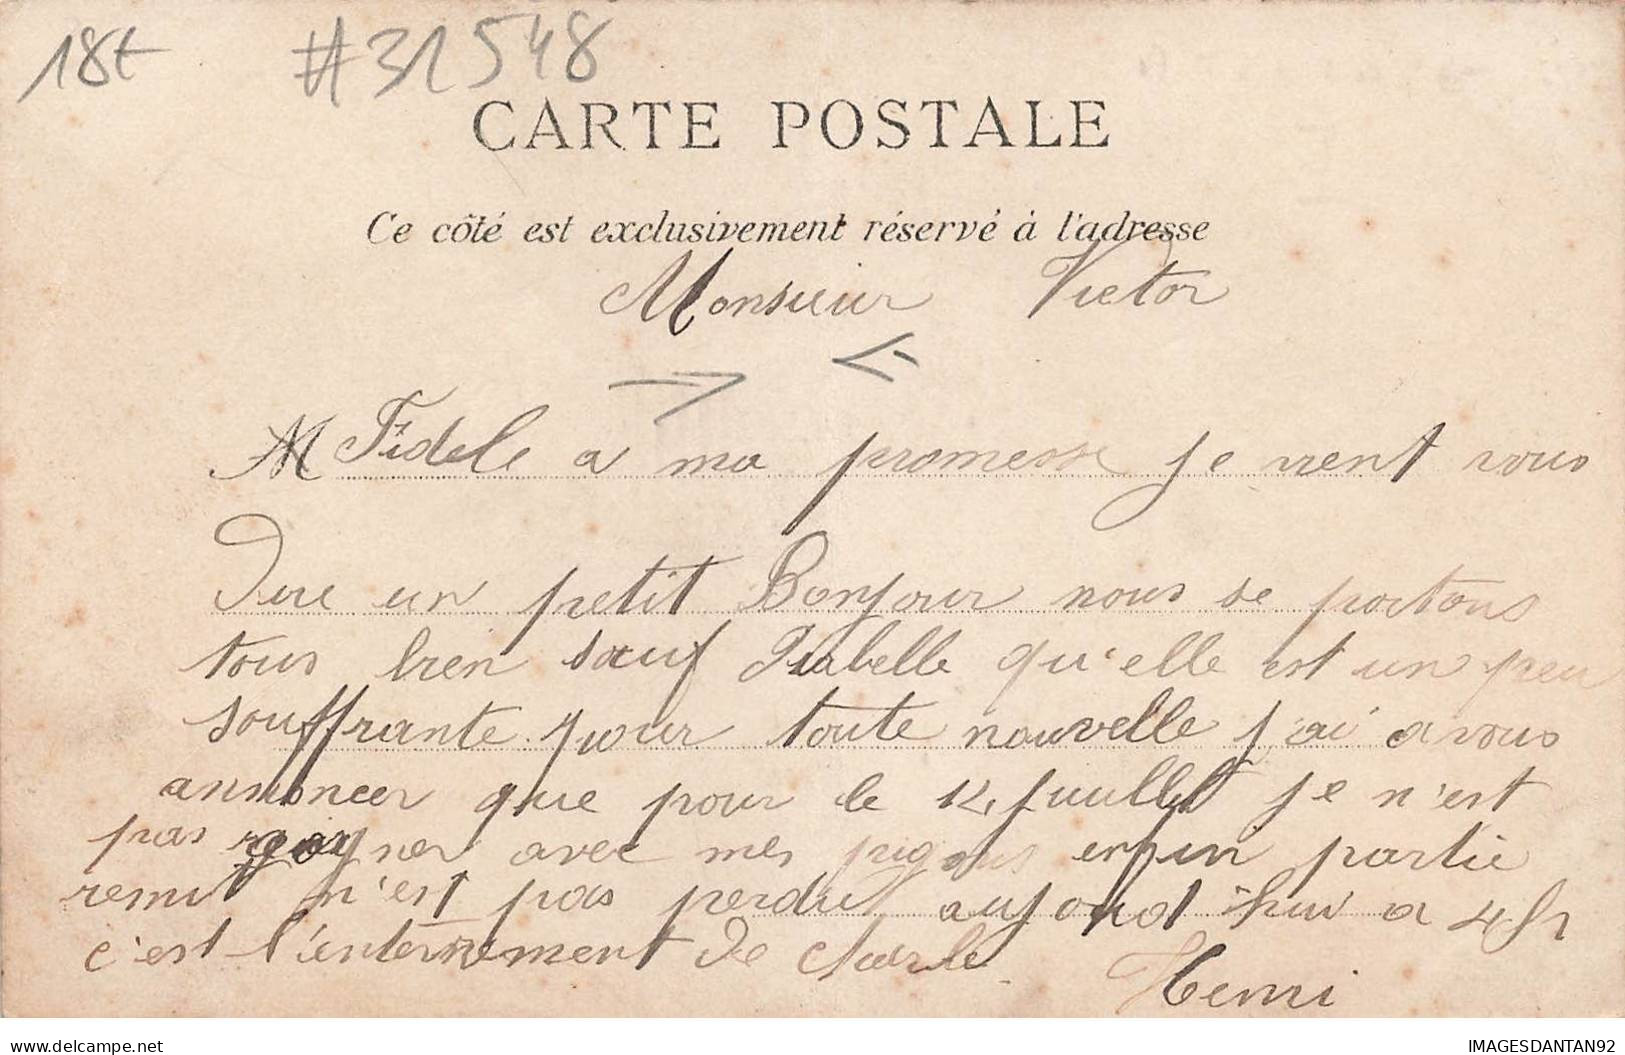 18t #31548
CARTE POSTALE
Ce côté est exclusivement réservé à l'adresse
Monsieur Victor
M Fidele a ma promesse je vient vous
Dire un petit Bonjour nous se portons
tous bien sauf Isabelle qu'elle est un peu
souffrante pour toute nouvelle j'ai a vous
annoncer que pour le 14 juillet je n'est
pas gagner avec mes pigons enfin partie
remit n'est pas perdu aujourd'hui a 4h
c'est l'enterrement de charle
Henri
IMAGESDANTAN92
delcampe.net